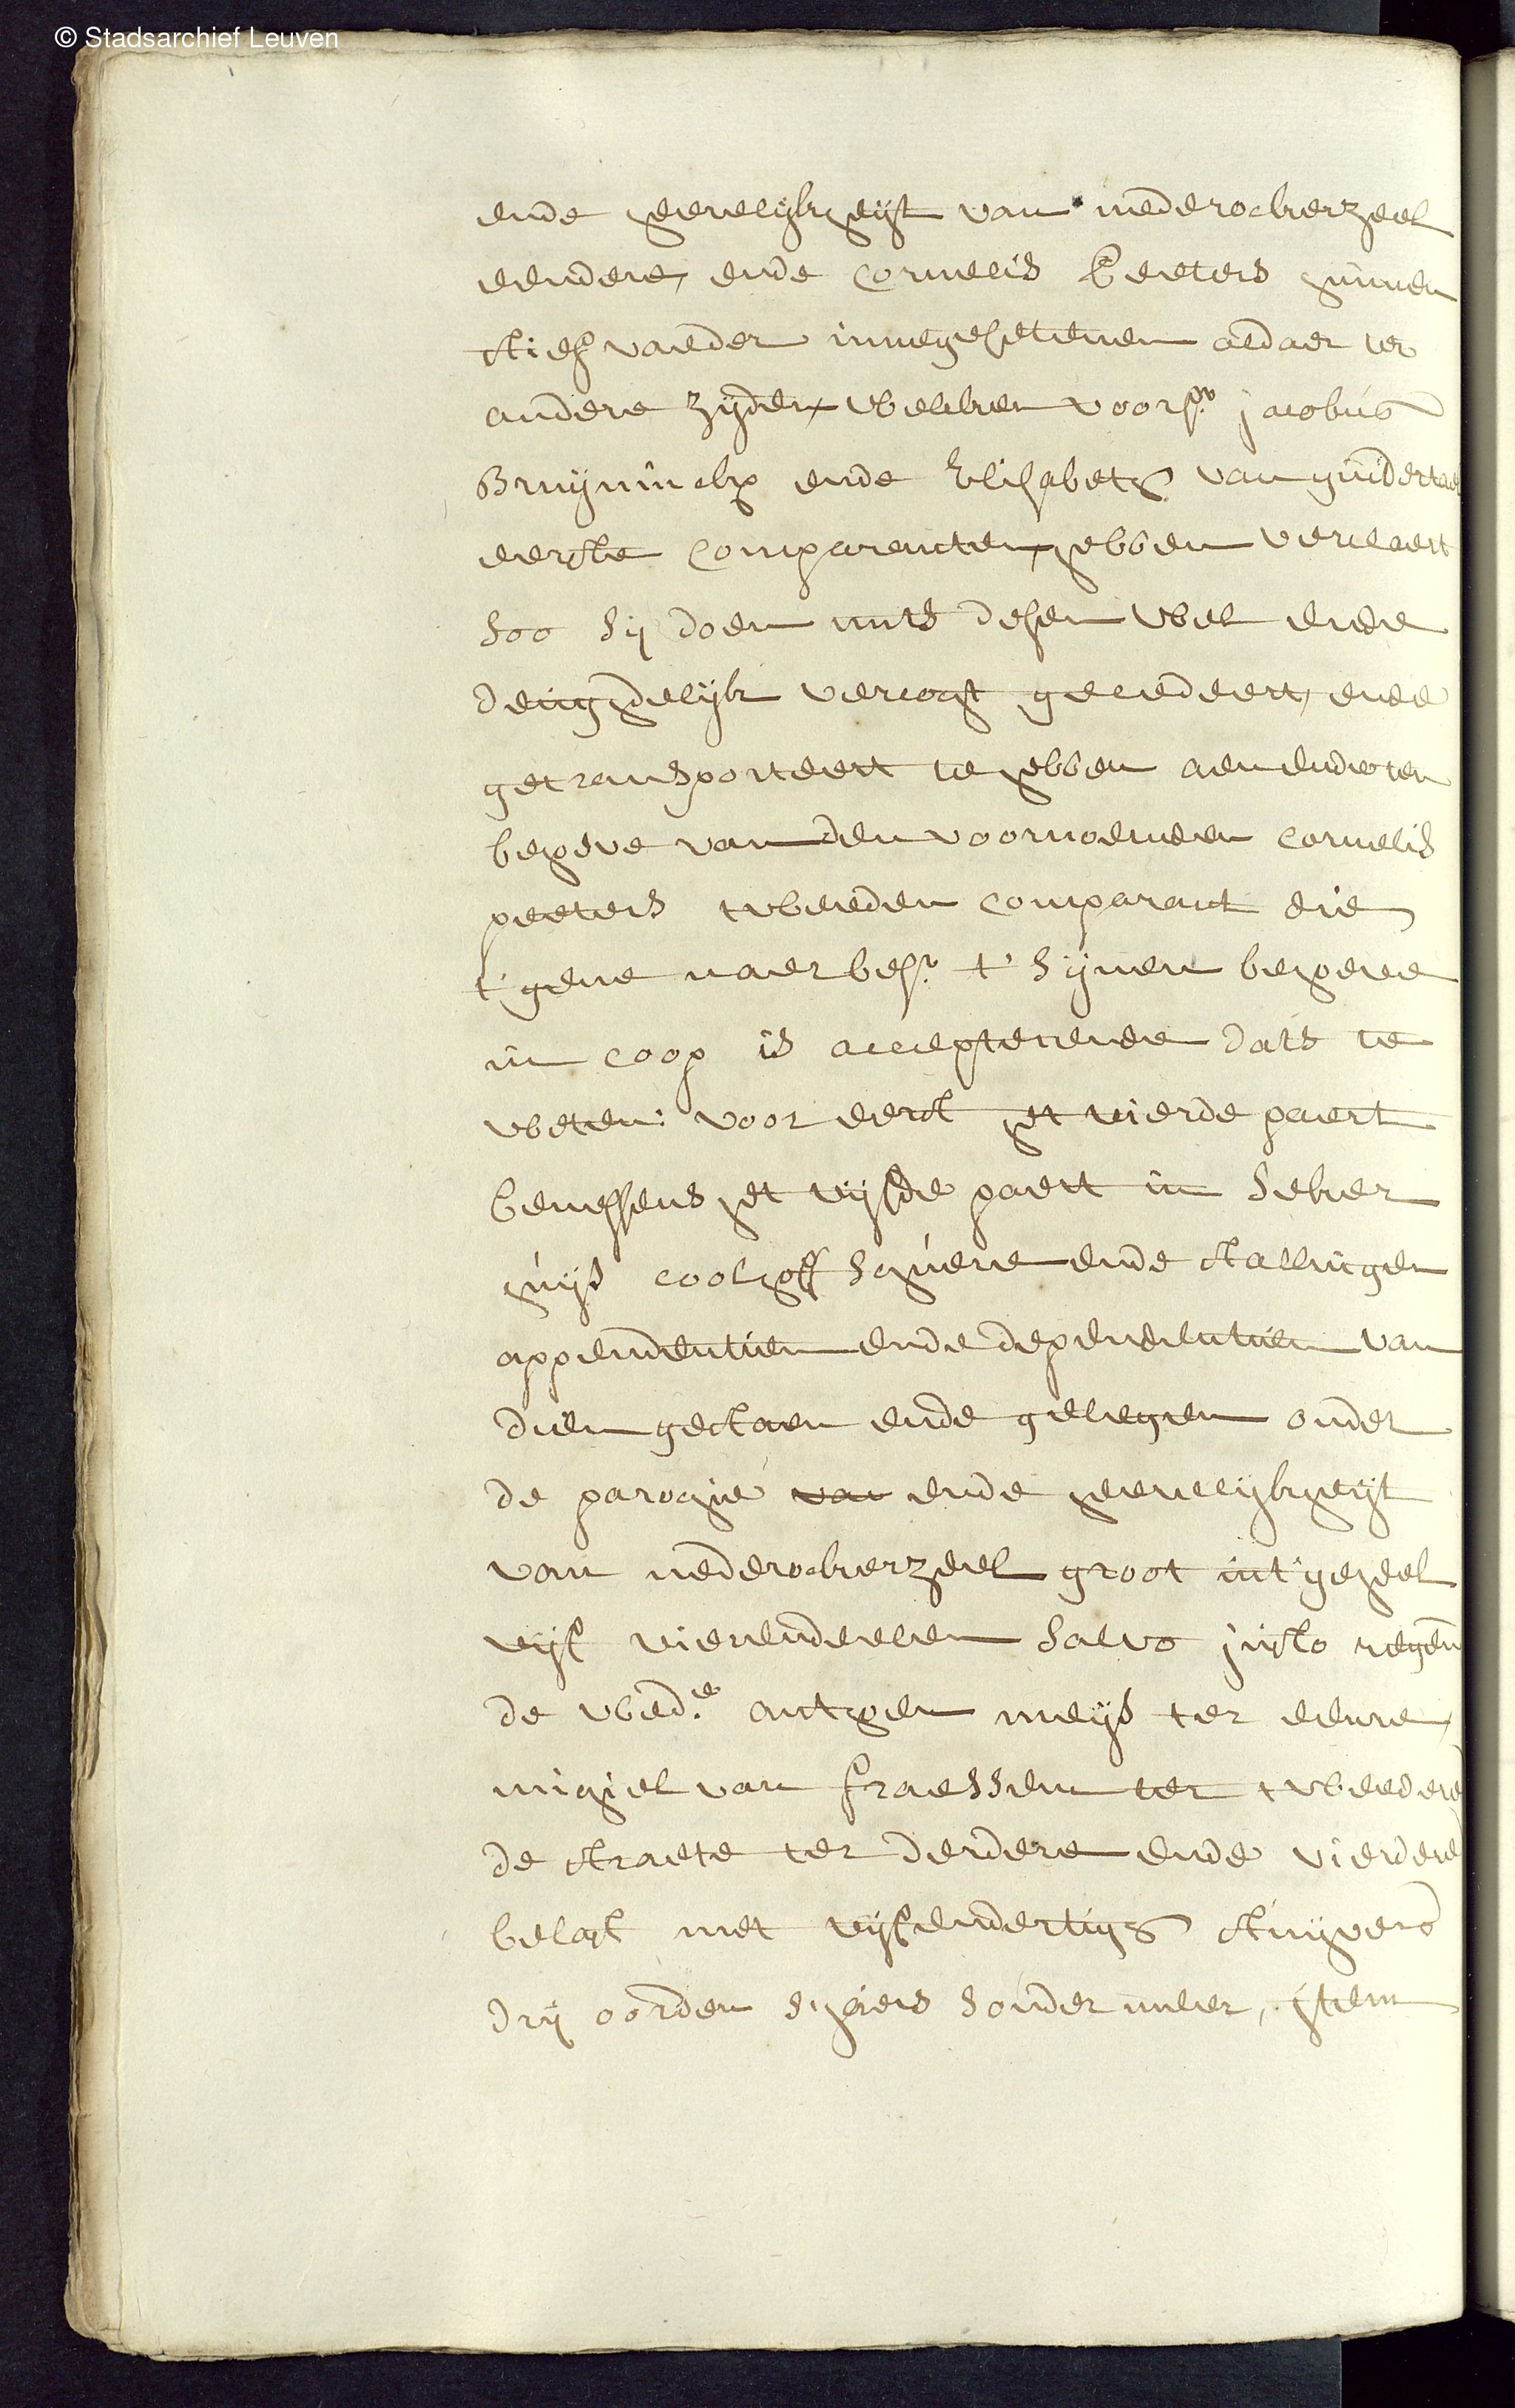 © Stadsarchief Leuven
ende heerelijkheijt van nederockerzeel
eendere, ende Cornelis Peeters hunnen
stiefvaeder innegesetenen aldaer ter
andere zijden, welcken voors. jacobus
Bruijninckx ende Elisabeth van
eerste Comparenten, hebben verclaert
soo sij doen mits desen wel ende
deughdelijk vercocht gecedeert, ende
getransporteert te hebben aen ende ten
behoeve van den voornoemden Cornelis
peeters tweeden Comparant die
t'gene naerbes. t'sijnen behoeve
in coop is accepterende dats te
weten: voor eerst het vierde paert
beneffens het vijfde paert in seker
huijs coolhoff schuere ende stallingen
appendentien ende dependentien van
dien gestaen ende gelegen onder
de parochie van ende heerelijkheijt
van nederockerzeel groot int'geheel
vijf vierendeelen salvo justo regen.
de wed.e anthoen meijs ter eenre,
michiel van fraessem ter tweedere
de straete ter derdere ende vierdere
belast met vijfendertigh stuijvers
drij oorden chijns sonder meer, Item